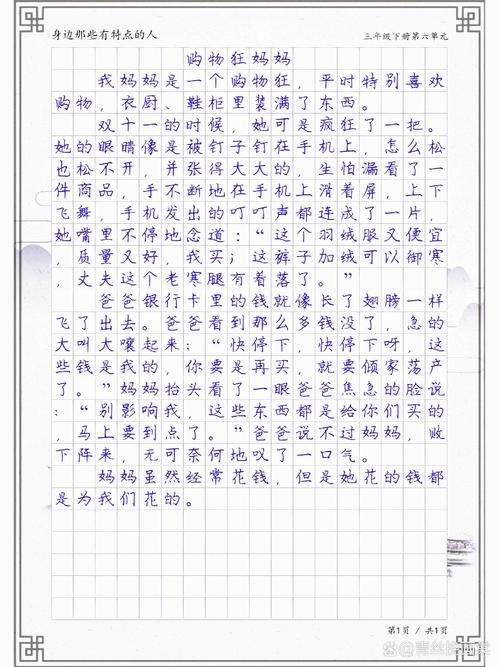 身边那些有特点的人
三年级下册第六单元
购物狂妈妈
我妈妈是一个购物狂，平时特别喜欢
购物，衣厨、鞋柜里装满了东西。
双十一的时候，她可是疯狂了一把。
她的眼睛像是被钉子钉在手机上，怎么松
也松不开，并张得大大的，生怕漏看了一
件商品，手不断地在手机上滑着屏，上下
飞舞，手机发出的叮叮声都连成了一片，
她嘴里不停地念道：“这个羽绒服又便宜
，质量又好，我买；这裤子加绒可以御寒
，丈夫这个老寒腿有着落了。”
爸爸银行卡里的钱就像长了翅膀一样
飞了出去。爸爸看到那么多钱没了，急的
大叫大嚷起来：“快停下，快停下呀，这
些钱是我的，你要是再买，就要倾家荡产
了。”妈妈抬头看了一眼爸爸焦急的脸说
：“别影响我，这些东西都是给你们买的
，马上要到点了。”爸爸说不过妈妈，败
下阵来，无可奈何地叹了一口气。
妈妈虽然经常花钱，但是她花的钱都
是为我们花的。
第1页 / 共1页